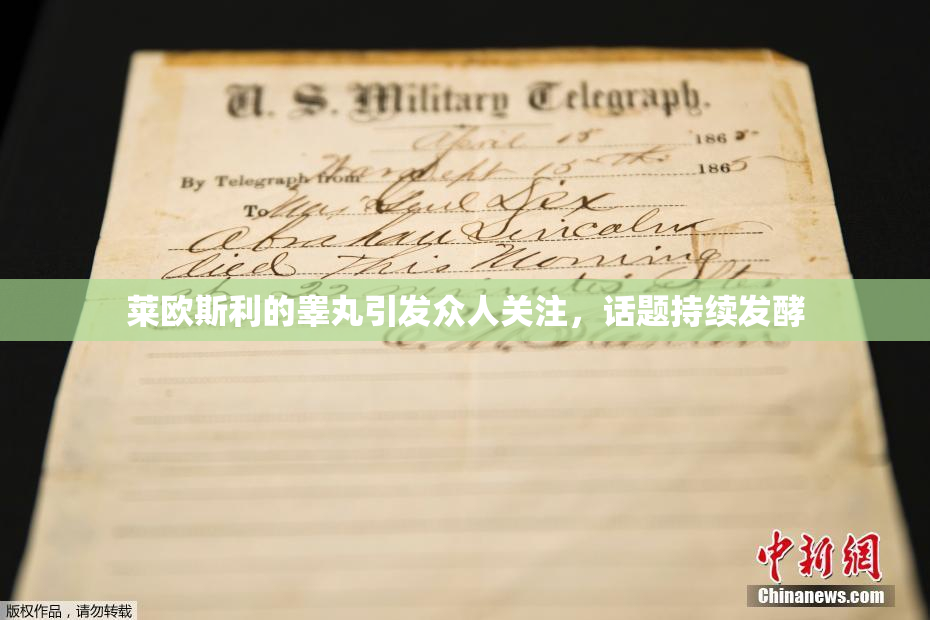 U. S. Military Telegraph.
April 15 1865
By Telegraph from War Dept 15th 1865
To Maj Genl Dix
Abraham Lincoln
died This Morning
at 22 minutes after
莱欧斯利的睾丸引发众人关注，话题持续发酵
中新网
Chinanews.com
版权作品，请勿转载